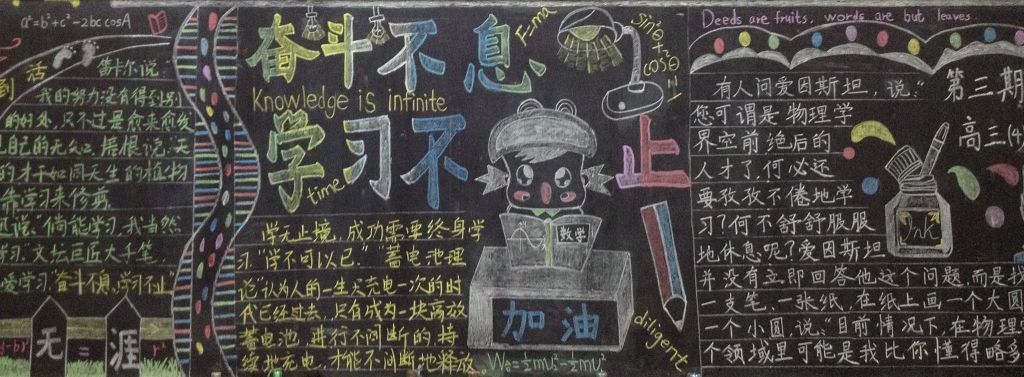 a²=b²+c²-2bc cosA
到 活
笛卡尔说:
我的努力没有得到别
的好处,只不过是愈来愈发
自己的无知。培根说:天
的才干如同天生的植物
靠学习来修剪
说:倘能学习,我当然
学习,文坛巨匠大手笔,
爱学习,奋斗不息,学习不止"
无 = 涯
奋斗不息
Knowledge is infinite
学习不止
time
F=ma
sin²θ+cos²θ=1
学无止境,成功需要终身学
习"学不可以已."蓄电池理
论认为人的一生只充电一次的时
代已经过去,只有成为一块高效
蓄电池,进行不间断的持
续地充电,才能不间断地释放。
数学
加油
W₀=½mv²-½mv²
diligent
Deeds are fruits, words are but leaves
第三期
高三(4)
有人问爱因斯坦,说,"
您可谓是物理学
界空前绝后的
人才了,何必还
要孜孜不倦地学
习?何不舒舒服服
地休息呢?爱因斯坦
并没有立即回答他这个问题,而是找
一支笔、一张纸,在纸上画一个大圆
一个小圆,说,"目前情况下,在物理学
个领域里可能是我比你懂得略多
Ink